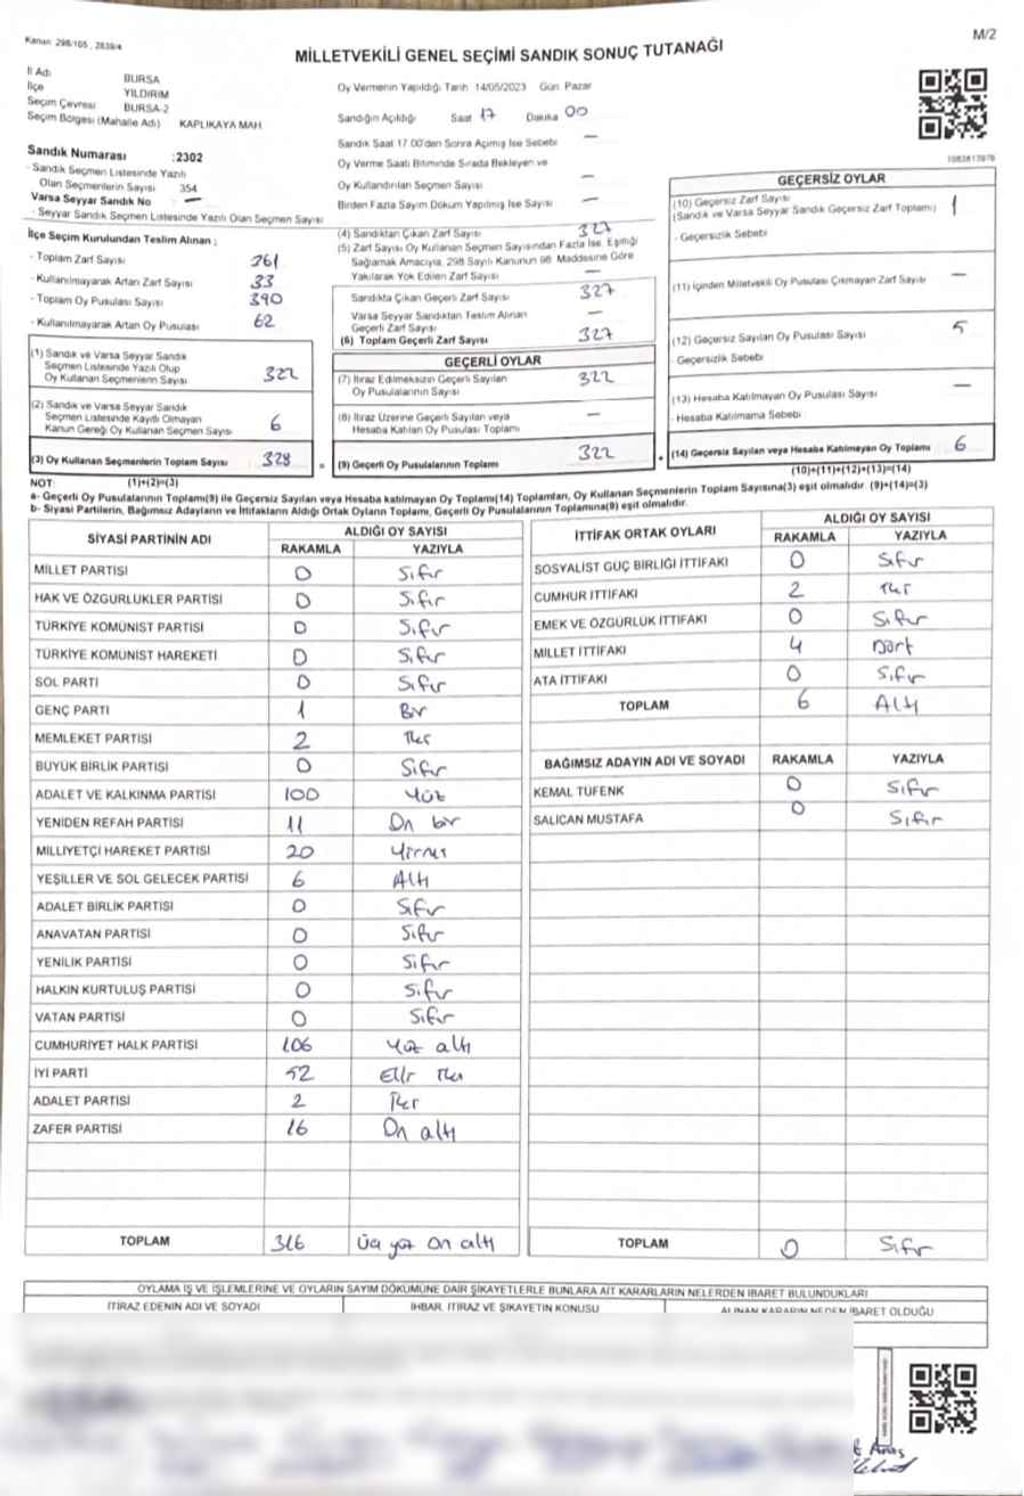 Kanun: 298/105 , 2839/4
M/2
MİLLETVEKİLİ GENEL SEÇİMİ SANDIK SONUÇ TUTANAĞI
İl Adı BURSA
İlçe YILDIRIM
Seçim Çevresi BURSA-2
Seçim Bölgesi (Mahalle Adı) KAPLIKAYA MAH.
Sandık Numarası :2302
- Sandık Seçmen Listesinde Yazılı
Olan Seçmenlerin Sayısı 354
Varsa Seyyar Sandık No —
- Seyyar Sandık Seçmen Listesinde Yazılı Olan Seçmen Sayısı
İlçe Seçim Kurulundan Teslim Alınan ;
- Toplam Zarf Sayısı 361
- Kullanılmayarak Artan Zarf Sayısı 33
- Toplam Oy Pusulası Sayısı 390
- Kullanılmayarak Artan Oy Pusulası 62
(1) Sandık ve Varsa Seyyar Sandık
Seçmen Listesinde Yazılı Olup
Oy Kullanan Seçmenlerin Sayısı 322
(2) Sandık ve Varsa Seyyar Sandık
Seçmen Listesinde Kayıtlı Olmayan
Kanun Gereği Oy Kullanan Seçmen Sayısı 6
(3) Oy Kullanan Seçmenlerin Toplam Sayısı 328
(1)+(2)=(3)
Oy Vermenin Yapıldığı Tarih 14/05/2023 Gün: Pazar
Sandığın Açıldığı Saat 17 Dakika 00
Sandık Saat 17:00'den Sonra Açılmış İse Sebebi —
Oy Verme Saati Bitiminde Sırada Bekleyen ve
Oy Kullandırılan Seçmen Sayısı —
Birden Fazla Sayım Döküm Yapılmış İse Sayısı —
(4) Sandıktan Çıkan Zarf Sayısı 327
(5) Zarf Sayısı Oy Kullanan Seçmen Sayısından Fazla İse, Eşitliği
Sağlamak Amacıyla, 298 Sayılı Kanunun 98. Maddesine Göre
Yakılarak Yok Edilen Zarf Sayısı —
Sandıkta Çıkan Geçerli Zarf Sayısı 327
Varsa Seyyar Sandıktan Teslim Alınan
Geçerli Zarf Sayısı —
(6) Toplam Geçerli Zarf Sayısı 327
GEÇERLİ OYLAR
(7) İtiraz Edilmeksizin Geçerli Sayılan
Oy Pusulalarının Sayısı 322
(8) İtiraz Üzerine Geçerli Sayılan veya
Hesaba Katılan Oy Pusulası Toplamı —
= (9) Geçerli Oy Pusulalarının Toplamı 322
GEÇERSİZ OYLAR
(10) Geçersiz Zarf Sayısı
(Sandık ve Varsa Seyyar Sandık Geçersiz Zarf Toplamı) 1
- Geçersizlik Sebebi
(11) İçinden Milletvekili Oy Pusulası Çıkmayan Zarf Sayısı —
(12) Geçersiz Sayılan Oy Pusulası Sayısı 5
- Geçersizlik Sebebi
(13) Hesaba Katılmayan Oy Pusulası Sayısı —
- Hesaba Katılmama Sebebi
+ (14) Geçersiz Sayılan veya Hesaba Katılmayan Oy Toplamı 6
(10)+(11)+(12)+(13)=(14)
NOT:
a- Geçerli Oy Pusulalarının Toplamı(9) ile Geçersiz Sayılan veya Hesaba katılmayan Oy Toplamı(14) Toplamları, Oy Kullanan Seçmenlerin Toplam Sayısına(3) eşit olmalıdır. (9)+(14)=(3)
b- Siyasi Partilerin, Bağımsız Adayların ve İttifakların Aldığı Ortak Oyların Toplamı, Geçerli Oy Pusulalarının Toplamına(9) eşit olmalıdır.
SİYASİ PARTİNİN ADI
ALDIĞI OY SAYISI
RAKAMLA YAZIYLA
MİLLET PARTİSİ 0 Sıfır
HAK VE ÖZGÜRLÜKLER PARTİSİ 0 Sıfır
TÜRKİYE KOMÜNİST PARTİSİ 0 Sıfır
TÜRKİYE KOMÜNİST HAREKETİ 0 Sıfır
SOL PARTİ 0 Sıfır
GENÇ PARTİ 1 Bir
MEMLEKET PARTİSİ 2 İki
BÜYÜK BİRLİK PARTİSİ 0 Sıfır
ADALET VE KALKINMA PARTİSİ 100 Yüz
YENİDEN REFAH PARTİSİ 11 On bir
MİLLİYETÇİ HAREKET PARTİSİ 20 Yirmi
YEŞİLLER VE SOL GELECEK PARTİSİ 6 Altı
ADALET BİRLİK PARTİSİ 0 Sıfır
ANAVATAN PARTİSİ 0 Sıfır
YENİLİK PARTİSİ 0 Sıfır
HALKIN KURTULUŞ PARTİSİ 0 Sıfır
VATAN PARTİSİ 0 Sıfır
CUMHURİYET HALK PARTİSİ 106 Yüz altı
İYİ PARTİ 52 Elli iki
ADALET PARTİSİ 2 İki
ZAFER PARTİSİ 16 On altı
TOPLAM 316 Üç yüz on altı
İTTİFAK ORTAK OYLARI
ALDIĞI OY SAYISI
RAKAMLA YAZIYLA
SOSYALİST GÜÇ BİRLİĞİ İTTİFAKI 0 Sıfır
CUMHUR İTTİFAKI 2 İki
EMEK VE ÖZGÜRLÜK İTTİFAKI 0 Sıfır
MİLLET İTTİFAKI 4 Dört
ATA İTTİFAKI 0 Sıfır
TOPLAM 6 Altı
BAĞIMSIZ ADAYIN ADI VE SOYADI RAKAMLA YAZIYLA
KEMAL TÜFENK 0 Sıfır
SALİCAN MUSTAFA 0 Sıfır
TOPLAM 0 Sıfır
OYLAMA İŞ VE İŞLEMLERİNE VE OYLARIN SAYIM DÖKÜMÜNE DAİR ŞİKAYETLERLE BUNLARA AİT KARARLARIN NELERDEN İBARET BULUNDUKLARI
İTİRAZ EDENİN ADI VE SOYADI
İHBAR, İTİRAZ VE ŞİKAYETİN KONUSU
ALINAN KARARIN NEDEN İBARET OLDUĞU